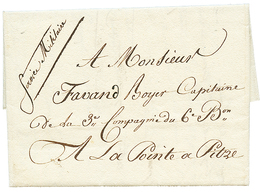 Service Militaire
A Monsieur
Favand Boyer Capitaine
de la 3.e Compagnie du 6.e B.on
A La Pointe a Pitre